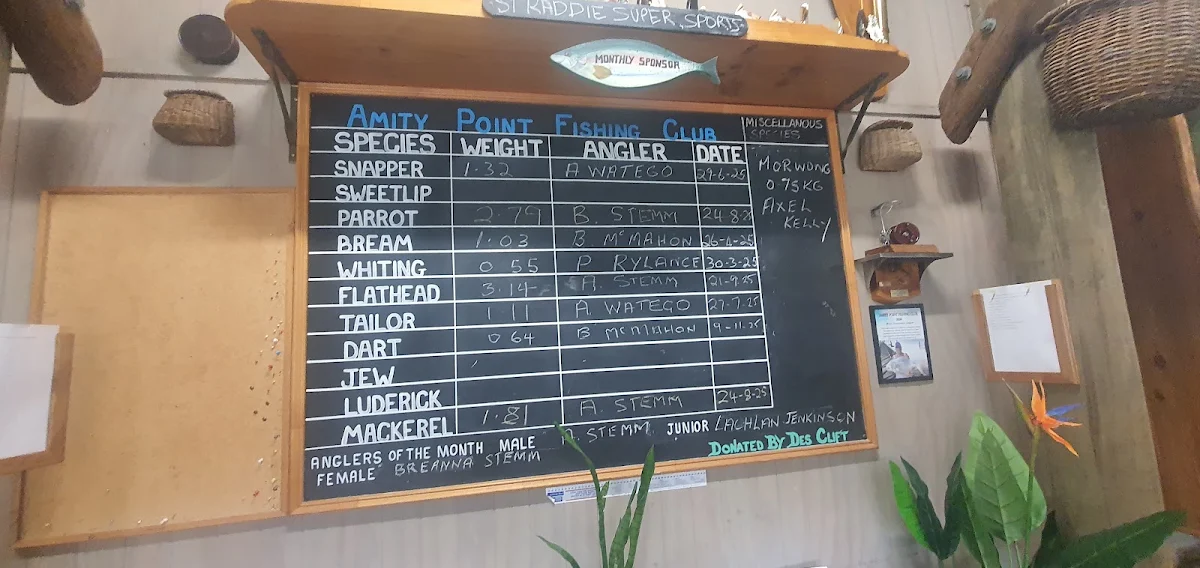 STRADDIE SUPER SPORTS
MONTHLY SPONSOR
AMITY POINT FISHING CLUB
SPECIES WEIGHT ANGLER DATE
SNAPPER 1.32 A WATEGO 29-6-25
SWEETLIP
PARROT 2.79 B. STEMM 24-8-25
BREAM 1.03 B McMAHON 26-4-25
WHITING 0.55 P RYLANCE 30-3-25
FLATHEAD 3.14 A. STEMM 21-9-25
TAILOR 1.11 A. WATEGO 27-7-25
DART 0.64 B McMAHON 9-11-25
JEW
LUDERICK
MACKEREL 1.81 A. STEMM 24-8-25
MISCELLANOUS
SPECIES
MORWONG
0.75KG
AXEL
KELLY
ANGLERS OF THE MONTH MALE STEMM JUNIOR LACHLAN JENKINSON
FEMALE BREANNA STEMM
DONATED BY DES CLIFT